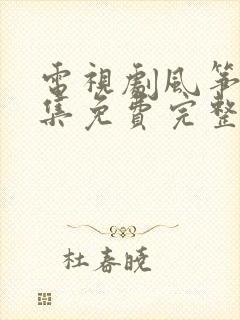 電視劇風筝
集免費完整
杜春曉